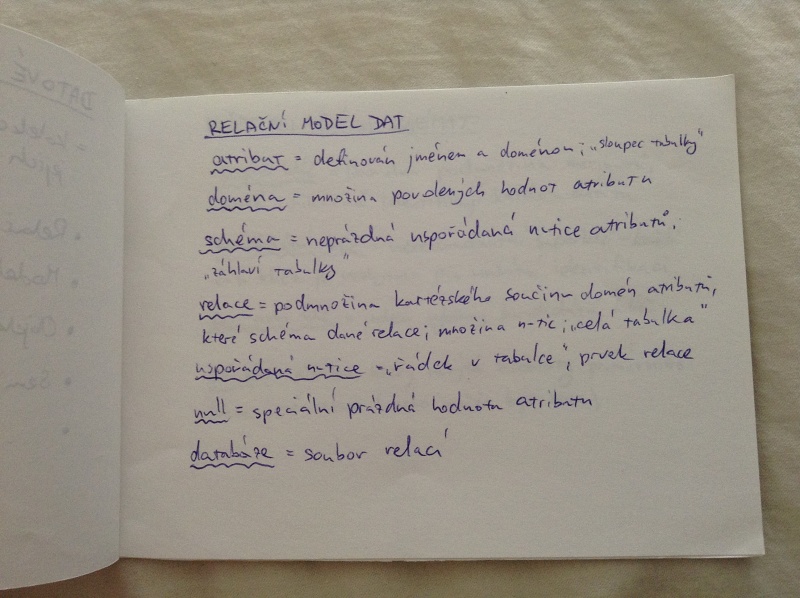 RELAČNÍ MODEL DAT
atribut = definován jménem a doménou; „sloupec tabulky"
doména = množina povolených hodnot atributu
schéma = neprázdná uspořádaná n-tice atributů;
„záhlaví tabulky"
relace = podmnožina kartézského součinu domén atributů,
které schéma dané relace; množina n-tic; „celá tabulka"
uspořádaná n-tice = „řádek v tabulce", prvek relace
null = speciální prázdná hodnota atributu
databáze = soubor relací
DATOVÉ